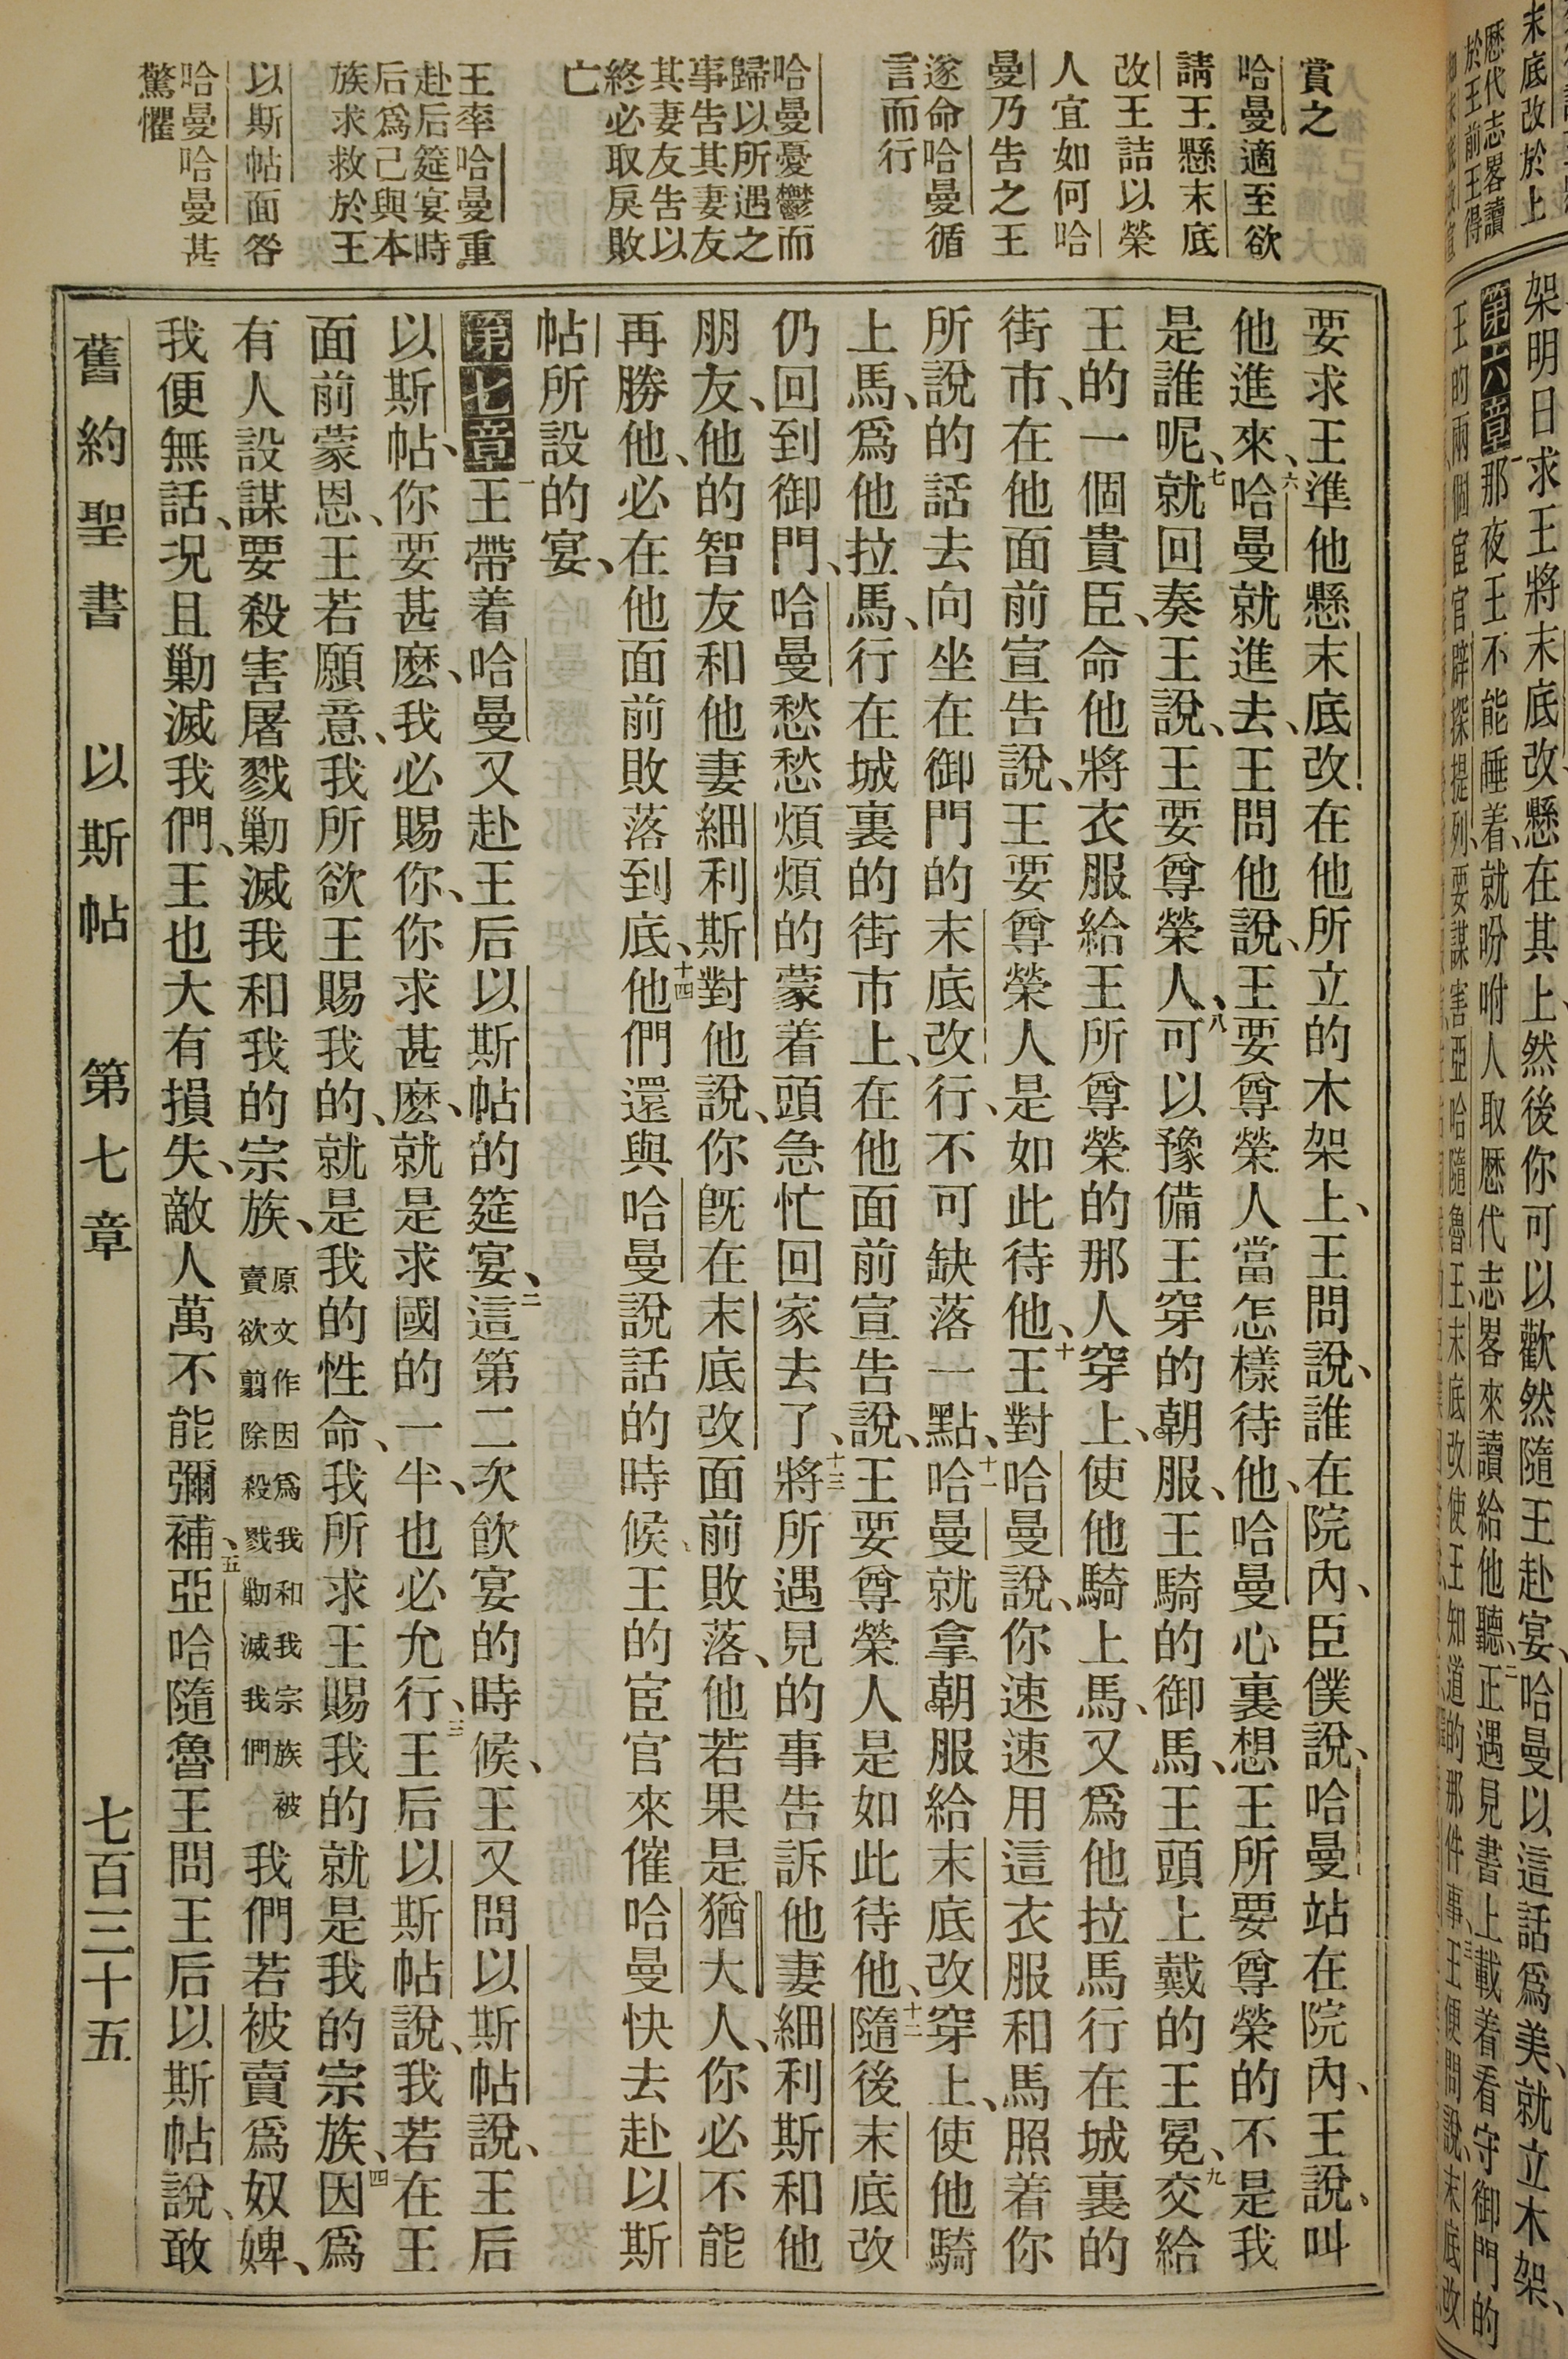 末底改於上
歷代志畧讀
於王前王得
架明日求王將末底改懸在其上然後你可以歡然隨王赴宴、哈曼以這話爲美、就立木架、
第六章一那夜王不能睡着、就吩咐人取歷代志畧來讀給他聽、二正遇見書上載着看守御門的
王的兩個宦官辟探提列、要謀害亞哈隨魯王、末底改使王知道的那件事、三王便問說、末底改
賞之
哈曼適至欲
請王懸末底
改王詰以榮
人宜如何哈
曼乃告之王
遂命哈曼循
言而行
哈曼憂鬱而
歸以所遇之
事告其妻友
其妻友告以
終必取戾敗
亡
王率哈曼重
赴后筵宴時
后爲己與本
族求救於王
以斯帖面咎
哈曼哈曼甚
驚懼
要求王準他懸末底改在他所立的木架上、王問說、誰在院內、臣僕說、哈曼站在院內、王說、叫
他進來、六哈曼就進去、王問他說、王要尊榮人當怎樣待他、哈曼心裏想王所要尊榮的不是我
是誰呢、七就回奏王說、王要尊榮人、八可以豫備王穿的朝服、王騎的御馬、王頭上戴的王冕、九交給
王的一個貴臣、命他將衣服給王所尊榮的那人穿上、使他騎上馬、又爲他拉馬行在城裏的
街市、在他面前宣告說、王要尊榮人是如此待他、十王對哈曼說、你速速用這衣服和馬照着你
所說的話去向坐在御門的末底改行、不可缺落一點、十一哈曼就拿朝服給末底改穿上、使他騎
上馬、爲他拉馬、行在城裏的街市上、在他面前宣告說、王要尊榮人是如此待他、十二隨後末底改
仍回到御門、哈曼愁愁煩煩的蒙着頭急忙回家去了、十三將所遇見的事告訴他妻細利斯和他
朋友、他的智友和他妻細利斯對他說、你旣在末底改面前敗落、他若果是猶大人、你必不能
再勝他、必在他面前敗落到底、十四他們還與哈曼說話的時候、王的宦官來催哈曼快去赴以斯
帖所設的宴、
第七章一王帶着哈曼又赴王后以斯帖的筵宴、二這第二次飲宴的時候、王又問以斯帖說、王后
以斯帖、你要甚麽、我必賜你、你求甚麽、就是求國的一半、也必允行、三王后以斯帖說、我若在王
面前蒙恩、王若願意、我所欲王賜我的、就是我的性命、我所求王賜我的就是我的宗族、四因爲
有人設謀要殺害屠戮勦滅我和我的宗族、原文作因爲我和我宗族被賣欲翦除殺戮勦滅我們我們若被賣爲奴婢、
我便無話、况且勦滅我們、王也大有損失、敵人萬不能彌補、五亞哈隨魯王問王后以斯帖說、敢
舊約聖書 以斯帖 第七章 七百三十五